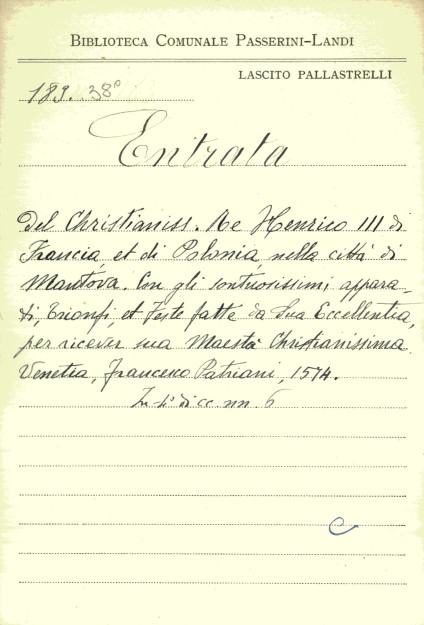 BIBLIOTECA COMUNALE PASSERINI-LANDI
LASCITO PALLASTRELLI
189. 38º
Entrata
Del Christianiss. Re Henrico III di
Francia et di Polonia, nella città di
Mantova. Con gli sontuosissimi appara-
ti, Trionfi, et Feste fatte da Sua Eccellentia,
per ricever sua Maestà Christianissima.
Venetia, Francesco Patriani, 1574.
In-4º di cc. nn. 6
C